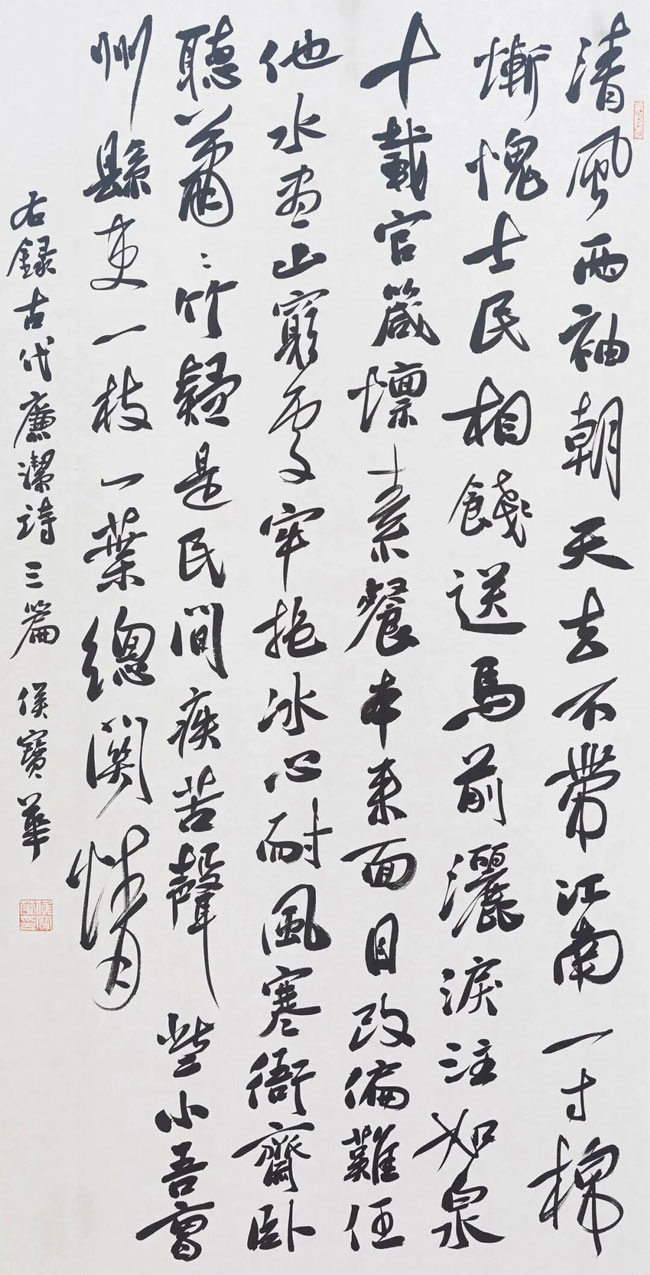 清風兩袖朝天去不帶江南一寸棉
慚愧士民相餞送馬前灑淚注如泉
十載官箴懍素餐本来面目改偏難任
他水盡山窮處牢抱冰心耐風寒衙齋卧
聽蕭〻竹疑是民間疾苦聲 些小吾曹
州縣吏一枝一葉總関情
右錄古代廉潔詩三篇 侯寶華